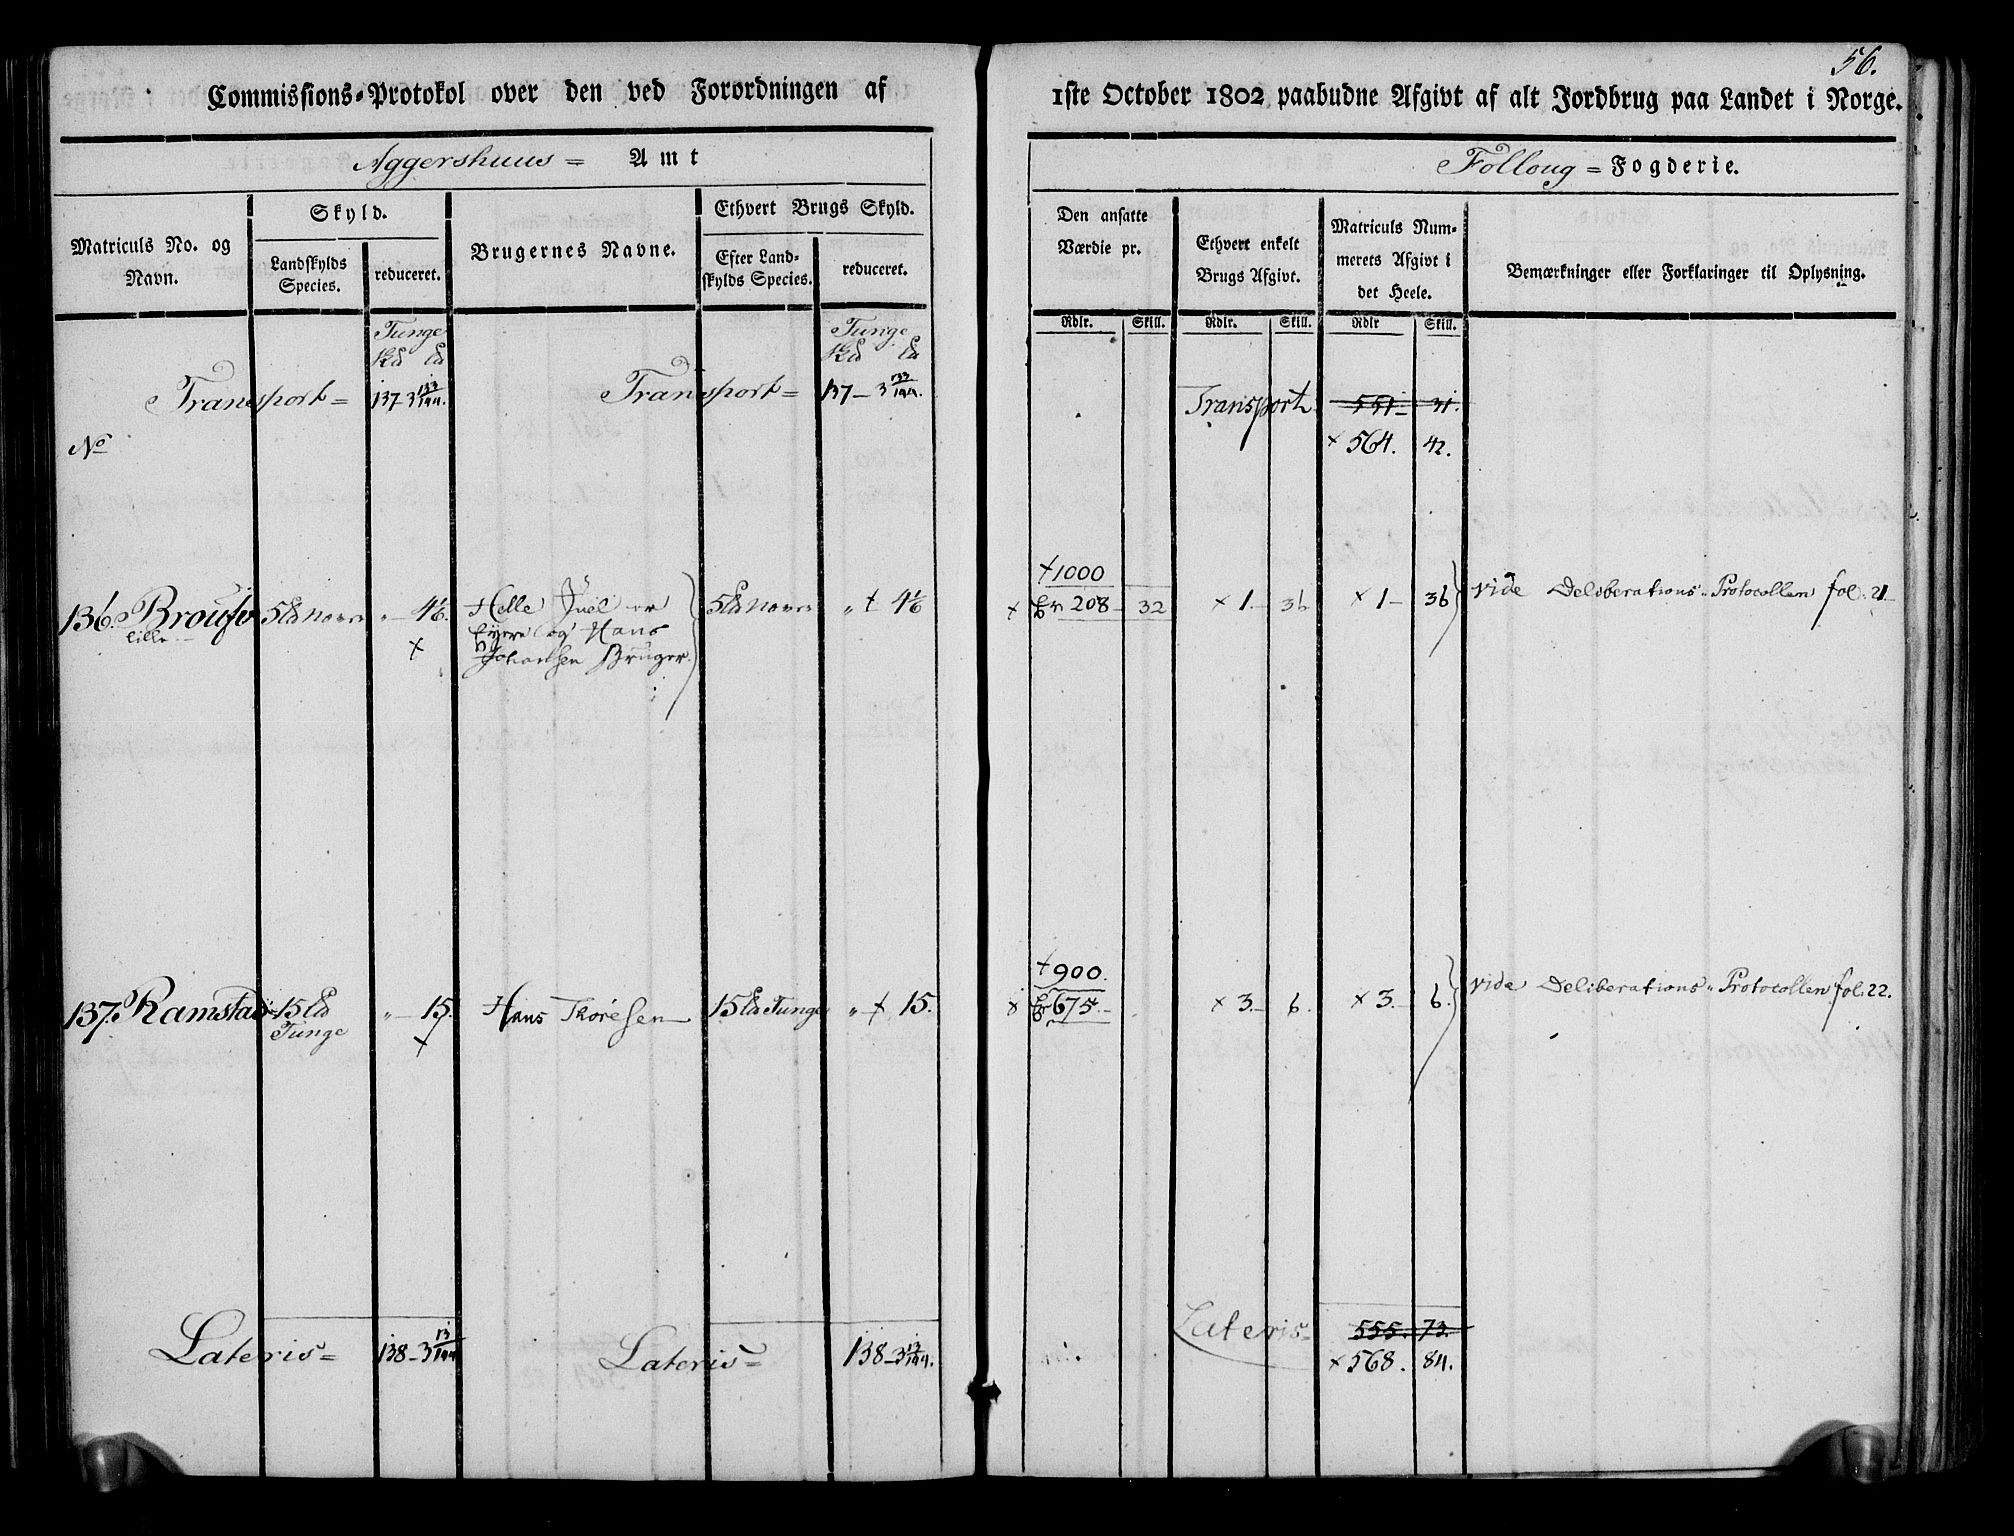 56.
Commissions-Protokol over den ved Forordningen af 1ste October 1802 paabudne Afgivt af alt Jordbrug paa Landet i Norge.
Aggershuus = Amt
Folloug = Fogderie.
Matriculs No. og Navn.
Skyld.
Landskylds Species.
reduceret.
Brugernes Navne.
Ethvert Brugs Skyld.
Efter Landskylds Species.
reduceret.
Den ansatte Værdie pr.
Ethvert enkelt Brugs Afgivt.
Matriculs Nummerets Afgivt i det Heele.
Bemærkninger eller Forklaringer til Oplysning.
Rdlr. Skill. Rdlr. Skill. Rdlr Skill.
Tunge
Tunge
Transport = 137 - 3 133/144. Transport = 137 - 3 133/144. Transport 551 - 31.
× 564. 42.
No
+1000
136. lille 4½. Helle Juel er 4½ × 208 - 32 × 1 - 36 × 1 - 36 vide Deliberations-Protocollen fol. 21
Eyere og Hans
Johansen Bruger.
+900.
137. Ramstad 15 Tunge „ - 15. Hans Thoresen 15 Tunge „ + 15. × 675 - × 3 - 6. × 3 - 6. vide Deliberations-Protocollen fol. 22.
Lateris = 138 - 3 13/144 Lateris = 138 - 3 13/144. Lateris = 555. 73.
× 568. 84.